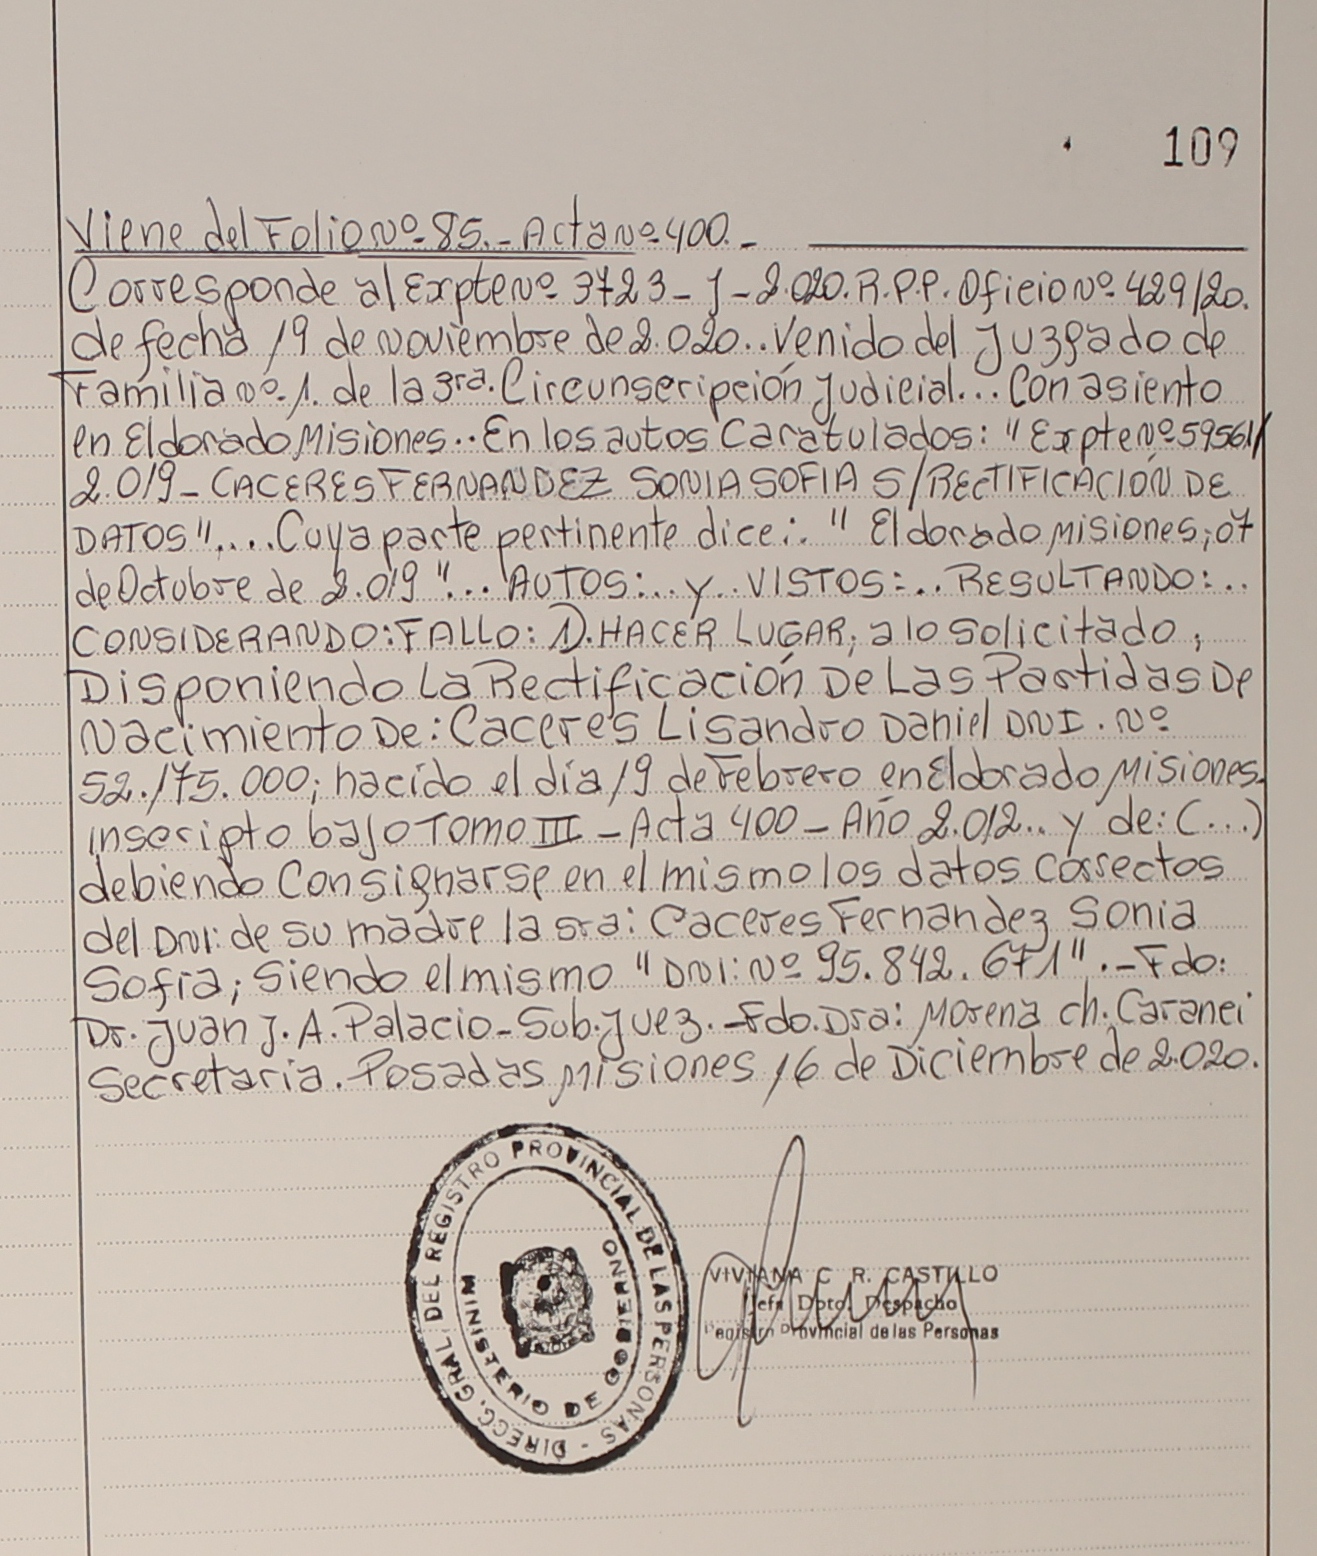 109
Viene del Folio Nº 85.- Acta Nº 400.-
Corresponde al Expte Nº 3723-J-2.020. R.P.P. Oficio Nº 429/20.
de fecha 19 de Noviembre de 2.020.. Venido del Juzgado de
Familia Nº 1. de la 3ra. Circunscripción Judicial... Con asiento
en Eldorado, Misiones.. En los autos Caratulados: "Expte Nº 59561/
2.019- CACERES FERNANDEZ SONIA SOFIA S/RECTIFICACIÓN DE
DATOS".... Cuya parte pertinente dice:. "Eldorado, Misiones; 07
de Octubre de 2.019"... AUTOS:.. y.. VISTOS:.. RESULTANDO:..
CONSIDERANDO: FALLO: 1). HACER LUGAR; a lo solicitado,
Disponiendo La Rectificación De Las Partidas De
Nacimiento De: Caceres Lisandro Daniel DNI. Nº
52.175.000; nacido el día 19 de Febrero en Eldorado, Misiones.
inscripto bajo TOMO III - Acta 400 - Año 2.012.. y de: (...)
debiendo Consignarse en el mismo los datos correctos
del DNI: de su madre la sra: Caceres Fernandez Sonia
Sofía; Siendo el mismo "DNI: Nº 95.842.671".- Fdo:
Dr. Juan J. A. Palacio - Sub. Juez. - Fdo. Dra: Morena Ch. Caranei
Secretaria. Posadas, Misiones 16 de Diciembre de 2.020.
DIRECC. GRAL. DEL REGISTRO PROVINCIAL DE LAS PERSONAS -
MINISTERIO DE GOBIERNO
VIVIANA C R. CASTILLO
Jefa Dpto. Despacho
Registro Provincial de las Personas